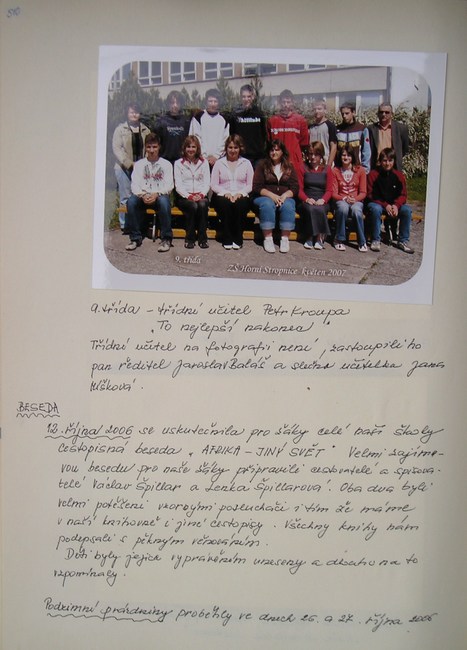 9. třída
ZŠ Horní Stropnice květen 2007
9. třída - třídní učitel Petr Kroupa
"To nejlepší nakonec"
Třídní učitel na fotografii není, zastoupili ho
pan ředitel Jaroslav Baláš a slečna učitelka Jana
Mšková.
BESEDA
12. října 2006 se uskutečnila pro žáky celé naší školy
cestopisná beseda "AFRIKA - JINÝ SVĚT" Velmi zajíma-
vou besedu pro naše žáky připravili cestovatelé a spisova-
telé Václav Špillar a Lenka Špillarová. Oba dva byli
velmi potěšeni vzornými posluchači i tím že máme
v naší knihovně i jiné cestopisy. Všechny knihy nám
podepsali s pěkným věnováním.
Děti byly jejich vyprávěním uneseny a dlouho na to
vzpomínaly.
Podzimní prázdniny proběhly ve dnech 26. a 27. října 2006